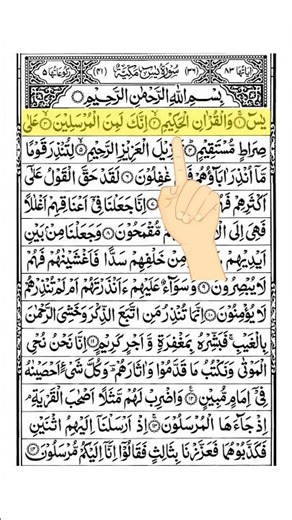 اٰيَاتُهَا ٨٣ (٣٦) سُوْرَةُ يٰسٓ مَكِّيَّةٌ (٤١) رُكُوْعَاتُهَا ٥
بِسْمِ اللّٰهِ الرَّحْمٰنِ الرَّحِيْمِ
يٰسٓ ۝ وَالْقُرْاٰنِ الْحَكِيْمِ ۝ اِنَّكَ لَمِنَ الْمُرْسَلِيْنَ ۝ عَلٰى
صِرَاطٍ مُّسْتَقِيْمٍ ۝ يْلَ الْعَزِيْزِ الرَّحِيْمِ ۝ لِتُنْذِرَ قَوْمًا
مَّاۤ اُنْذِرَ اٰبَآؤُهُمْ غٰفِلُوْنَ ۝ لَقَدْ حَقَّ الْقَوْلُ عَلٰۤى
اَكْثَرِهِمْ اِنَّا جَعَلْنَا فِيْۤ اَعْنَاقِهِمْ اَغْلٰلًا
فَهِيَ اِلَى مُّقْمَحُوْنَ ۝ وَجَعَلْنَا مِنْۢ بَيْنِ
اَيْدِيْهِمْ مِنْ خَلْفِهِمْ سَدًّا فَاَغْشَيْنٰهُمْ فَهُمْ
لَا يُبْصِرُوْنَ ۝ وَسَوَآءٌ عَلَيْهِمْ ءَاَنْذَرْتَهُمْ اَمْ لَمْ تُنْذِرْهُمْ
لَا يُؤْمِنُوْنَ ۝ اِنَّمَا تُنْذِرُ مَنِ اتَّبَعَ الذِّكْرَ وَخَشِيَ الرَّحْمٰنَ
بِالْغَيْبِ ۚ فَبَشِّرْهُ بِمَغْفِرَةٍ وَّاَجْرٍ كَرِيْمٍ ۝ اِنَّا نَحْنُ نُحْيِ
الْمَوْتٰى وَنَكْتُبُ مَا قَدَّمُوْا وَاٰثَارَهُمْ ؕ وَكُلَّ شَيْءٍ اَحْصَيْنٰهُ
فِيْۤ اِمَامٍ مُّبِيْنٍ ۝ وَاضْرِبْ لَهُمْ مَّثَلًا اَصْحٰبَ الْقَرْيَةِ ۘ
اِذْ جَآءَهَا الْمُرْسَلُوْنَ ۝ اِذْ اَرْسَلْنَاۤ اِلَيْهِمُ اثْنَيْنِ
فَكَذَّبُوْهُمَا فَعَزَّزْنَا بِثَالِثٍ فَقَالُوْۤا اِنَّاۤ اِلَيْكُمْ مُّرْسَلُوْنَ ۝